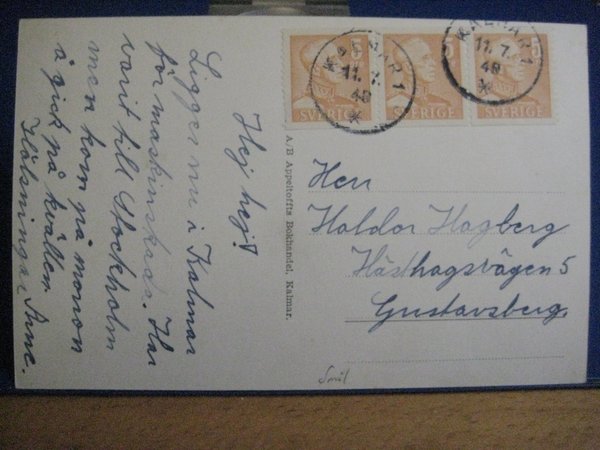 Hej hej!
Ligger nu i Kalmar
för maskinskada. Har
varit till Stockholm
men kom på morron
å gick på kvällen
Hälsningar Arne.
A/B Appeltoffts Bokhandel, Kalmar.
5
SVERIGE
5
SVERIGE
5
SVERIGE
KALMAR 1
11.7.
48
KALMAR 1
11.7.
48
Herr
Haldor Hagberg
Hästhagsvägen 5
Gustavsberg
Smil